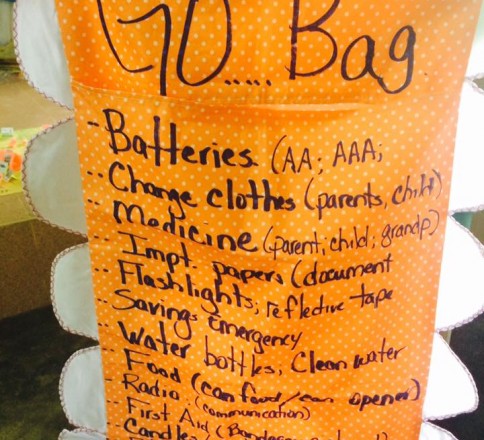 GO..... Bag
- Batteries (AA; AAA;
.. Change clothes (parents, child)
.. Medicine (parent; child; grandp)
.. Impt. papers (document
.. Flashlights; reflective tape
.. Savings Emergency
.. Water bottles; Clean water
.. Food (can food/can opener)
.. Radio (communication)
.. First Aid (
.. Candles